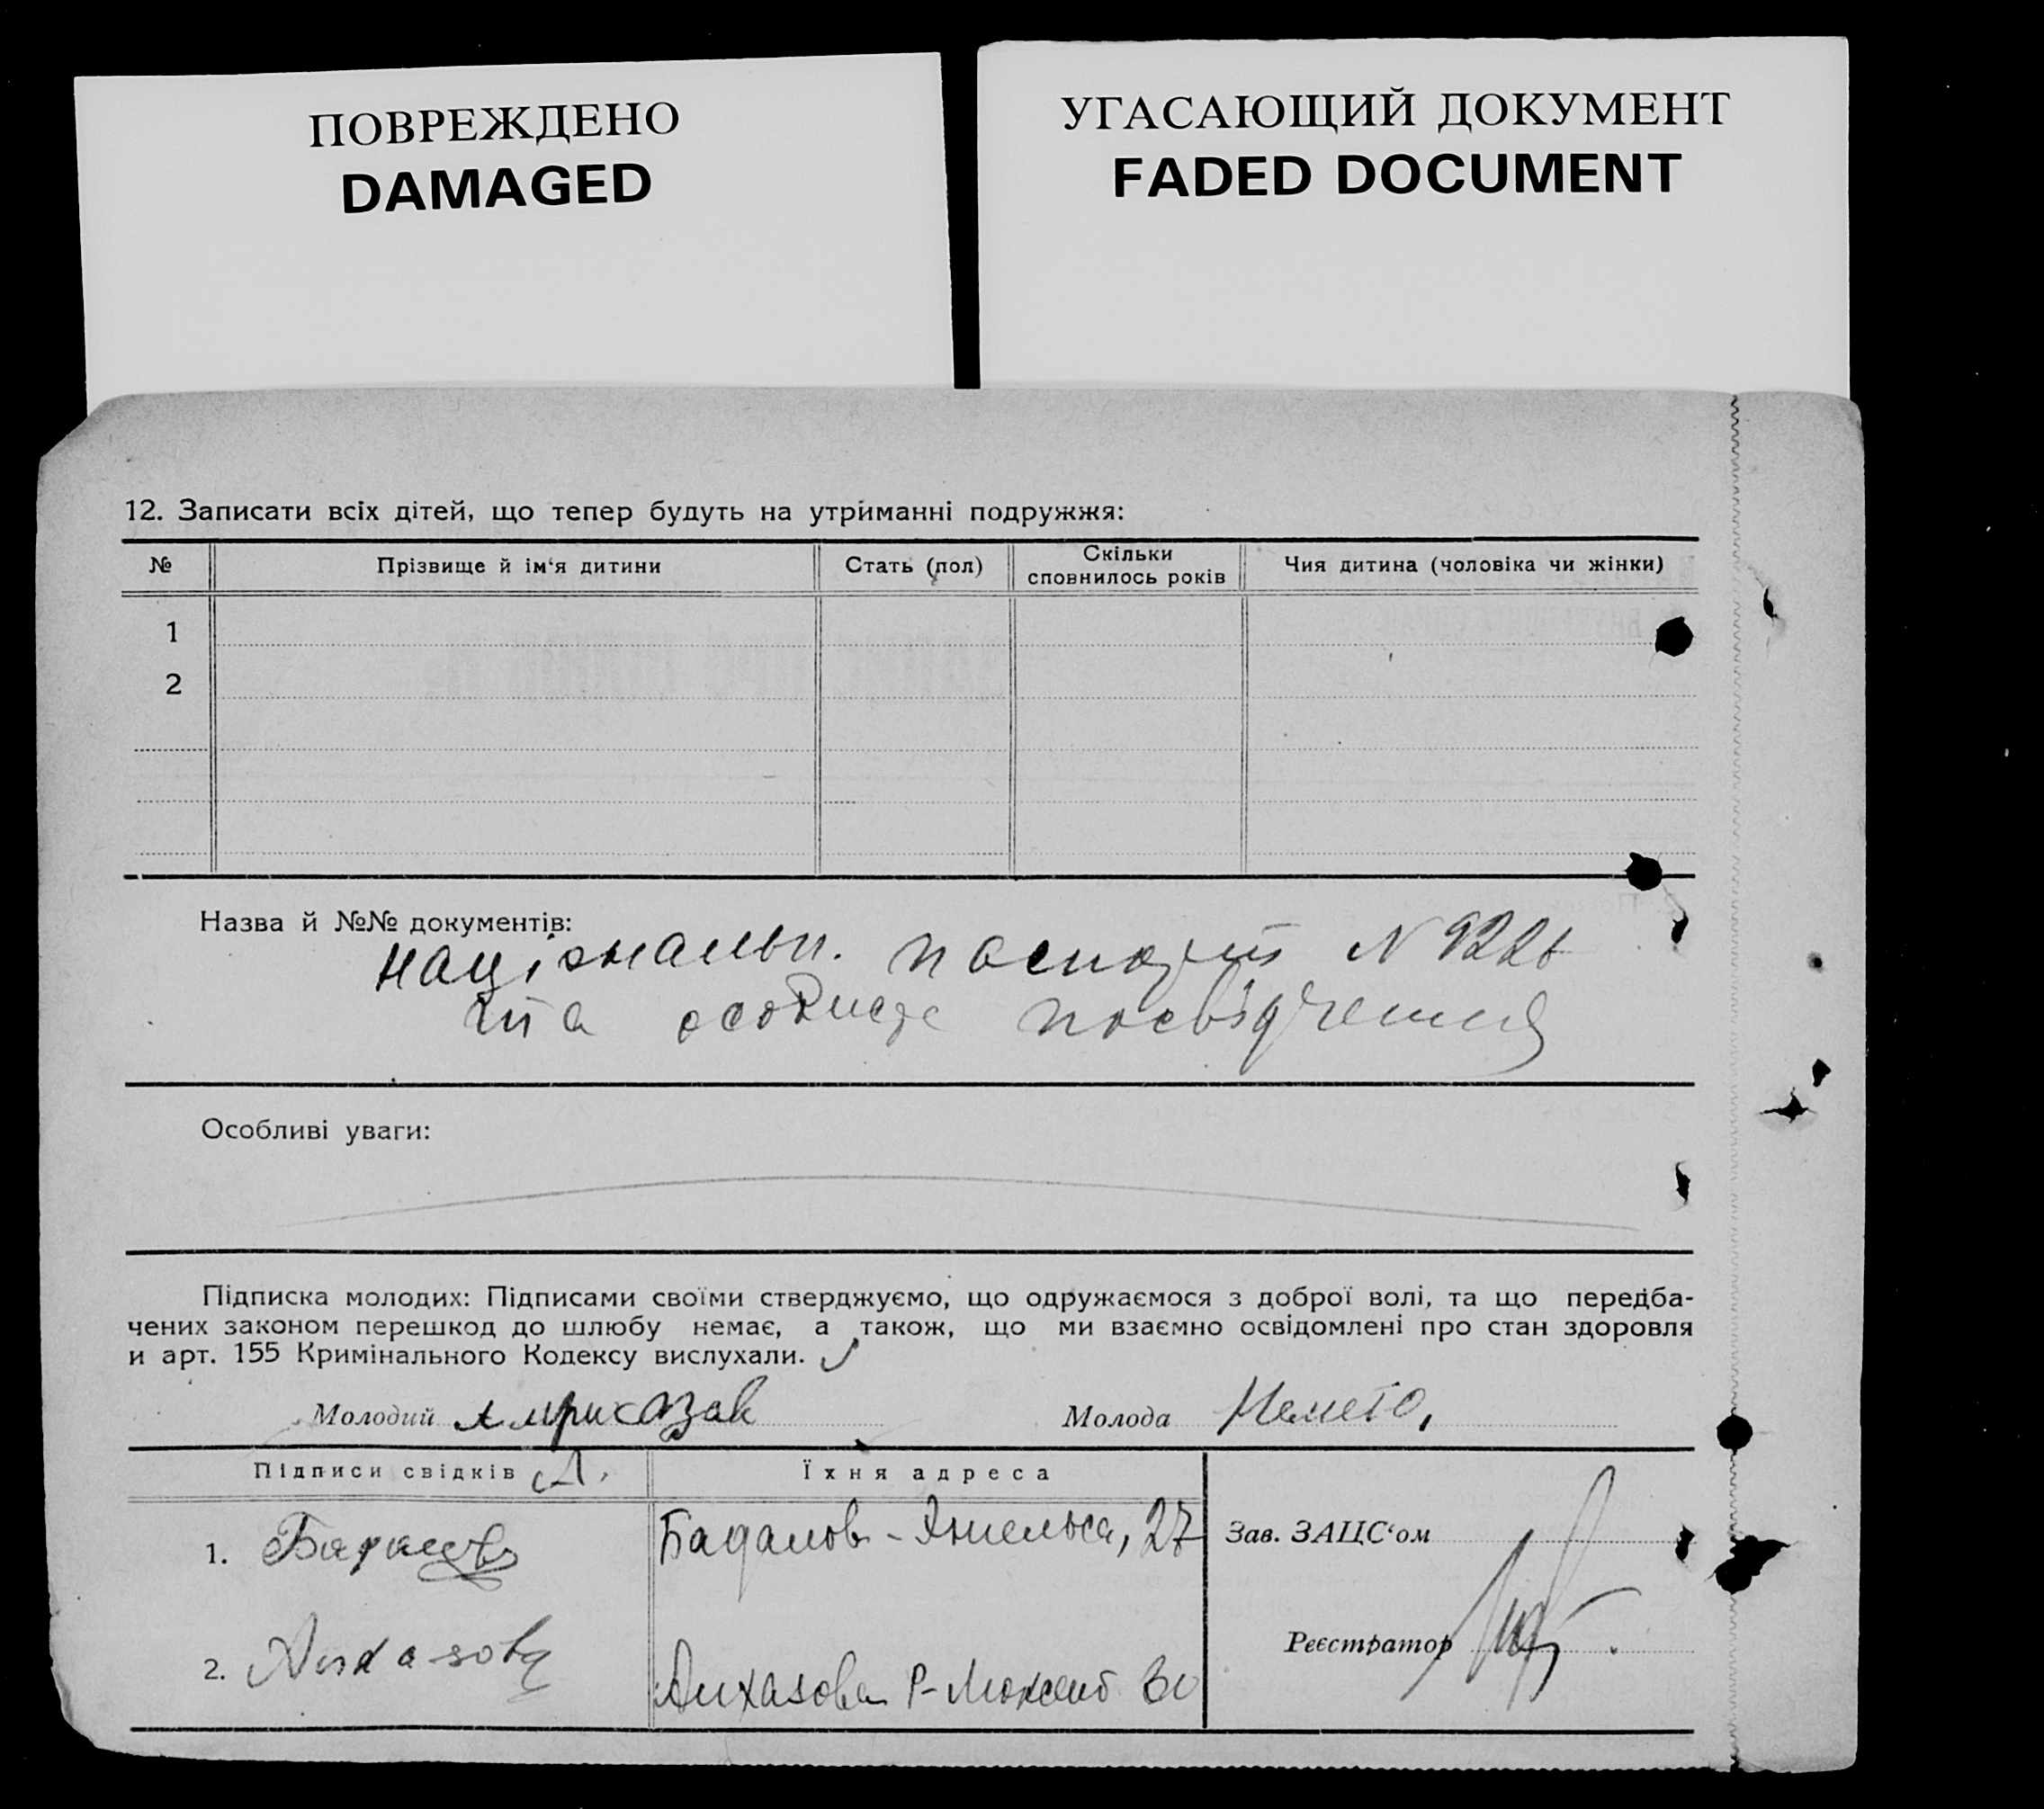 ПОВРЕЖДЕНО
DAMAGED
УГАСАЮЩИЙ ДОКУМЕНТ
FADED DOCUMENT
12. Записати всіх дітей, що тепер будуть на утриманні подружжя:
№ Прізвище й ім‘я дитини Стать (пол) Скільки сповнилось років Чия дитина (чоловіка чи жінки)
1
2
Назва й №№ документів:
національн. паспорт N
та особисте посвідчення
Особливі уваги:
Підписка молодих: Підписами своїми стверджуємо, що одружаємося з доброї волі, та що передба-
чених законом перешкод до шлюбу немає, а також, що ми взаємно освідомлені про стан здоровля
и арт. 155 Кримінального Кодексу вислухали.
Молодий Молода
Підписи свідків Їхня адреса
1. Бадалов Бадалов - Энгельса, 27
Зав. ЗАЦС‘ом
Реєстратор
2. Р-Люксемб 30